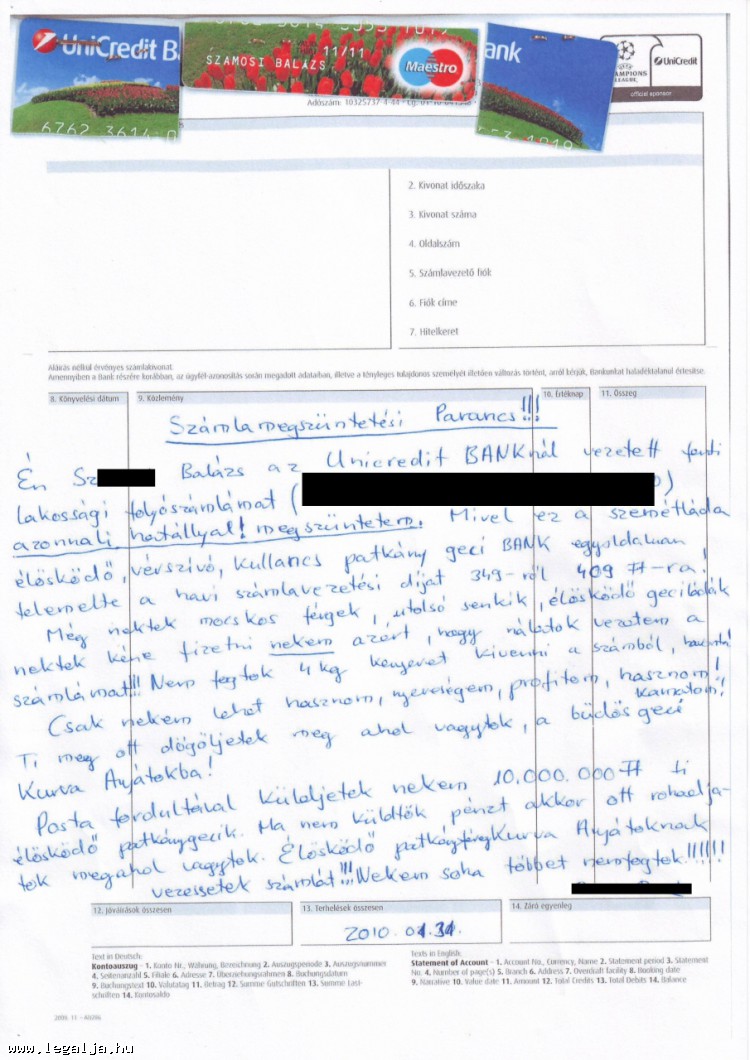 UniCredit Ba
6762 3614 0
11/11
SZAMOSI BALÁZS
Maestro
ank
CHAMPIONS
LEAGUE
UniCredit
official sponsor
Adószám: 10325737-4-44
2. Kivonat időszaka
3. Kivonat száma
4. Oldalszám
5. Számlavezető fiók
6. Fiók címe
7. Hitelkeret
Aláírás nélkül érvényes számlakivonat.
Amennyiben a Bank részére korábban, az ügyfél-azonosítás során megadott adataiban, illetve a tényleges tulajdonos személyét illetően változás történt, arról kérjük, Bankunkat haladéktalanul értesítse.
8. Könyvelési dátum
9. Közlemény
10. Értéknap
11. Összeg
Számlamegszüntetési Parancs!!!
Én Sz Balázs az Unicredit BANKnál vezetett fenti
lakossági folyószámlámat ( )
azonnali hatállyal! megszüntetem. Mivel ez a szemétláda
élősködő, vérszívó, kullancs patkány geci BANK egyoldaluan
felemelte a havi számlavezetési díjat 349-ről 409 Ft-ra!
Még nektek mocskos férgek, utolsó senkik, élősködő geciládák
nektek kéne fizetni nekem azért, hogy nálatok vezetem a
számlámat!!! Nem fogtok 4 kg kenyeret kivenni a számból, havonta!
Csak nekem lehet hasznom, nyereségem, profitom, hasznom!
kamatom!
Ti meg ott dögöljetek meg ahol vagytok, a büdös geci
Kurva Anyátokba!
Posta fordultával küldjetek nekem 10.000.000 Ft ti
élősködő patkánygecik. Ha nem küldtök pénzt akkor ott rohadja-
tok megahol vagytok. Élősködő Kurva Anyátoknak
vezessetek számlát!!! Nekem soha többet nemfogtok!!!!!!
12. Jóváírások összesen
13. Terhelések összesen
14. Záró egyenleg
2010. 01.31.
Text in Deutsch:
Kontoauszug - 1. Konto Nr., Währung, Bezeichnung 2. Auszugsperiode 3. Auszugsnummer
4. Seitenanzahl 5. Filiale 6. Adresse 7. Überziehungsrahmen 8. Buchungsdatum
9. Buchungstext 10. Valutatag 11. Betrag 12. Summe Gutschriften 13. Summe Last-
schriften 14. Kontosaldo
Texts in English:
Statement of Account - 1. Account No., Currency, Name 2. Statement period 3. Statement
No. 4. Number of page(s) 5. Branch 6. Address 7. Overdraft facility 8. Booking date
9. Narrative 10. Value date 11. Amount 12. Total Credits 13. Total Debits 14. Balance
www.legalja.hu